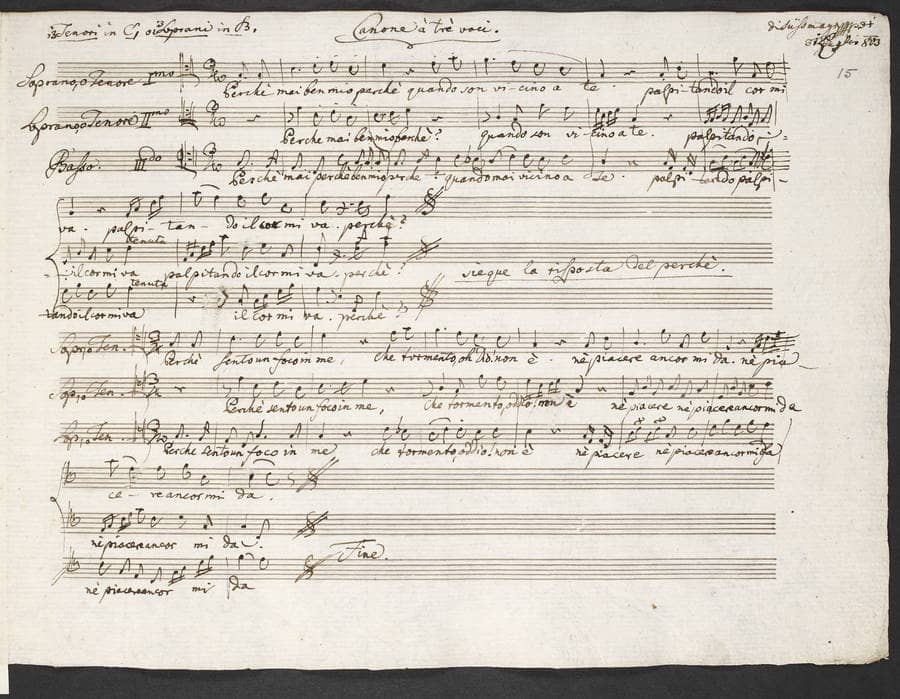 3 Tenori in C, o 3 Soprani in B.
Canone à trè voci.
di Süssmayr
15
Soprano, o Tenore Imo
Perchè mai ben mio perchè quando son vi-cino a te. palpitando il cor mi
Soprano, o Tenore IImo
Perche mai ben mio perchè? quando son vi-cino a te. palpitando i-
Basso.
Perche mai perche ben mio perche? quando mai vicino a te. palpi tando palpi-
va. palpi-tan-do il cor mi va. perchè?
tenuta
il cor mi va palpitando il cor mi va. perchè?
siegue la risposta del perchè.
tenuta
tando il cor mi va il cor mi va. perchè
Sopr. o Ten.
Perchè sento un foco in me, che tormento, oh Dio! non è. nè piacere ancor mi da. nè pia-
Sop. o Ten.
Perchè sento un foco in me, che tormento, oddio! non è nè piacere nè piacere ancor mi da
Sop. o Ten.
Perche sento un foco in me che tormento, oddio! non è nè piacere nè piacere ancor mi da
ce-re ancor mi da.
nè piacere ancor mi da.
Fine.
nè piacere ancor mi da